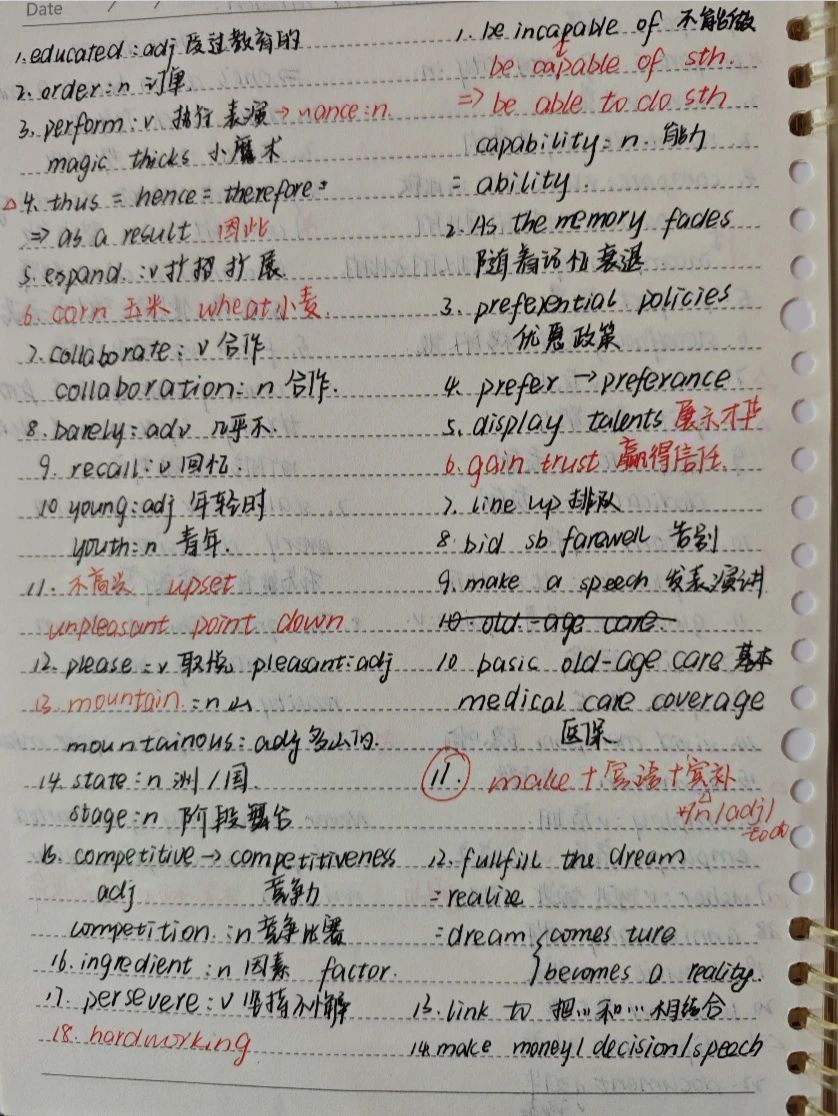 Date / /
1. educated : adj 受过教育的
2. order : n 订单.
3. perform : v 执行 表演 → nance : n.
magic thicks 小魔术
△ 4. thus = hence = therefore =
⇒ as a result 因此
5. expand : v 扩招 扩展.
6. corn 玉米 wheat 小麦.
7. collaborate : v 合作
collaboration : n 合作.
8. barely : adv 几乎不.
9. recall : v 回忆.
10 young : adj 年轻时
youth : n 青年.
11. 不高兴 upset
unpleasant point down
12. please : v 取悦 pleasant : adj
13. mountain : n 山
mountainous : adj 多山的.
14. state : n 洲 / 国.
stage : n 阶段 舞台
15. competitive → competitiveness
adj 竞争力
competition : n 竞争比赛
16. ingredient : n 因素 factor.
17. persevere : v 坚持不懈
18. hardworking
1. be incapable of 不能做
be capable of sth.
⇒ be able to do sth
capability : n. 能力
= ability.
2. As the memory fades
随着记忆衰退
3. preferential policies
优惠政策
4. prefer → preferance
5. display talents 展示才华
6. gain trust 赢得信任.
7. line up 排队
8. bid sb farewell 告别
9. make a speech 发表演讲
10. old-age care.
10 basic old-age care 基本
medical care coverage
医保
11. make + 宾语 + 宾补
n / adj /
to do
12. fullfill the dream
= realize
= dream { comes ture
becomes a reality.
13. link to 把... 和... 相结合
14. make money / decision / speach